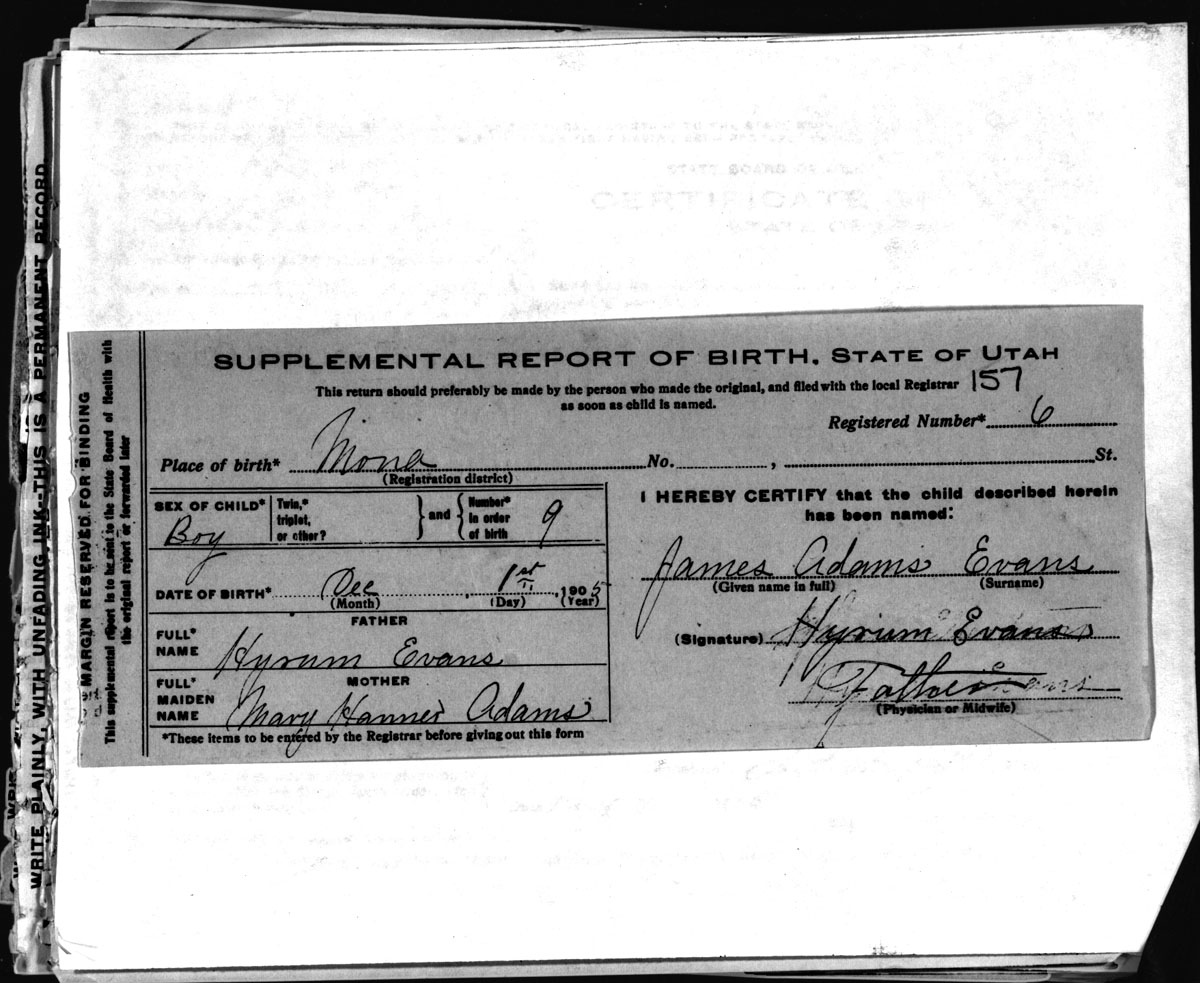 SUPPLEMENTAL REPORT OF BIRTH. STATE OF UTAH
This return should preferably be made by the person who made the original, and filed with the local Registrar 157
as soon as child is named.
Registered Number* 6
Place of birth* Mona No. , St.
(Registration district)
SEX OF CHILD* Boy
Twin,*
triplet,
or other?
} and {
Number*
in order
of birth
9
DATE OF BIRTH* Dec 1st , 1905
(Month) (Day) (Year)
FATHER
FULL*
NAME
Hyrum Evans
MOTHER
FULL*
MAIDEN
NAME
Mary Hanner Adams
*These items to be entered by the Registrar before giving out this form
I HEREBY CERTIFY that the child described herein
has been named:
James Adams Evans
(Given name in full) (Surname)
(Signature) Hyrum Evans
Father
(Physician or Midwife)
MARGIN RESERVED FOR BINDING
This supplemental report is to be sent to the State Board of Health with
the original report or forwarded later
WRITE PLAINLY, WITH UNFADING INK--THIS IS A PERMANENT RECORD